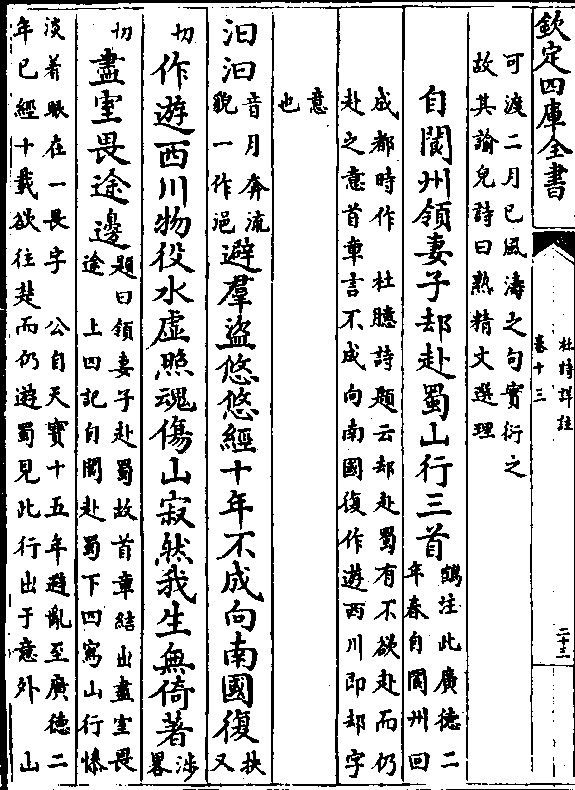 欽定四庫全書
杜詩詳註
卷十三
二十三
可渡二月已風濤之句實衍之
故其諭兒詩曰熟精文選理
自閬州領妻子却赴蜀山行三首
鶴注此廣德二
年春自閬州回
成都時作 杜臆詩題云却赴蜀有不欲赴而仍
赴之意首章言不成向南國復作遊西川即却字
意
也
汩汩
音月奔流
貌一作浥
避羣盜悠悠經十年不成向南國復
扶
又
切
作遊西川物役水虛照魂傷山寂然我生無倚著
涉
畧
切
盡室畏途邊
題曰領妻子赴蜀故首章結出盡室畏
途 上四記自閬赴蜀下四寫山行慘
淡着眼在一畏字 公自天寶十五年避亂至廣德二
年已經十載欲往楚而仍遊蜀見此行出于意外 山